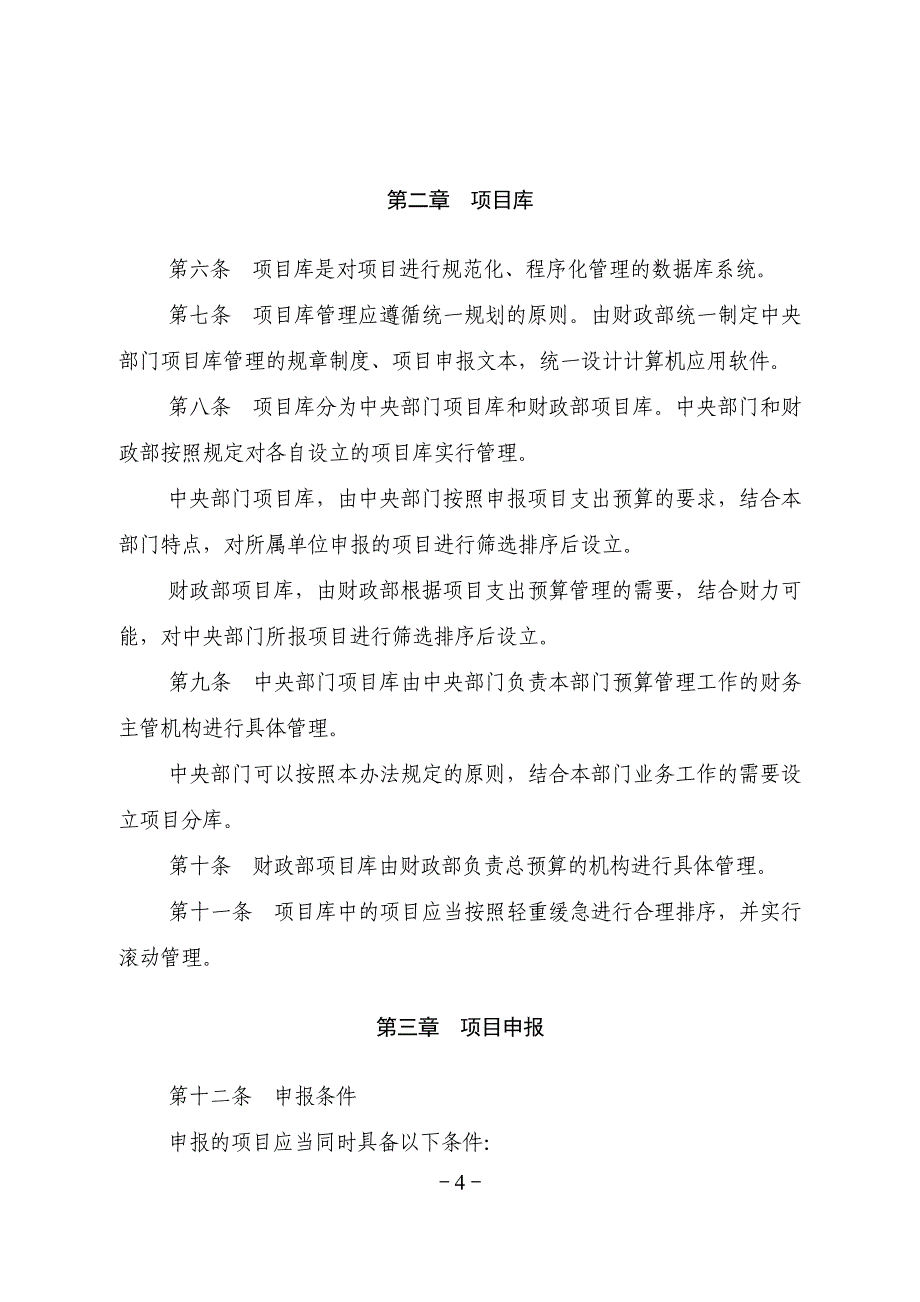 第二章　项目库
第六条　项目库是对项目进行规范化、程序化管理的数据库系统。
第七条　项目库管理应遵循统一规划的原则。由财政部统一制定中央
部门项目库管理的规章制度、项目申报文本，统一设计计算机应用软件。
第八条　项目库分为中央部门项目库和财政部项目库。中央部门和财
政部按照规定对各自设立的项目库实行管理。
中央部门项目库，由中央部门按照申报项目支出预算的要求，结合本
部门特点，对所属单位申报的项目进行筛选排序后设立。
财政部项目库，由财政部根据项目支出预算管理的需要，结合财力可
能，对中央部门所报项目进行筛选排序后设立。
第九条　中央部门项目库由中央部门负责本部门预算管理工作的财务
主管机构进行具体管理。
中央部门可以按照本办法规定的原则，结合本部门业务工作的需要设
立项目分库。
第十条　财政部项目库由财政部负责总预算的机构进行具体管理。
第十一条　项目库中的项目应当按照轻重缓急进行合理排序，并实行
滚动管理。
第三章　项目申报
第十二条　申报条件
申报的项目应当同时具备以下条件：
－4－